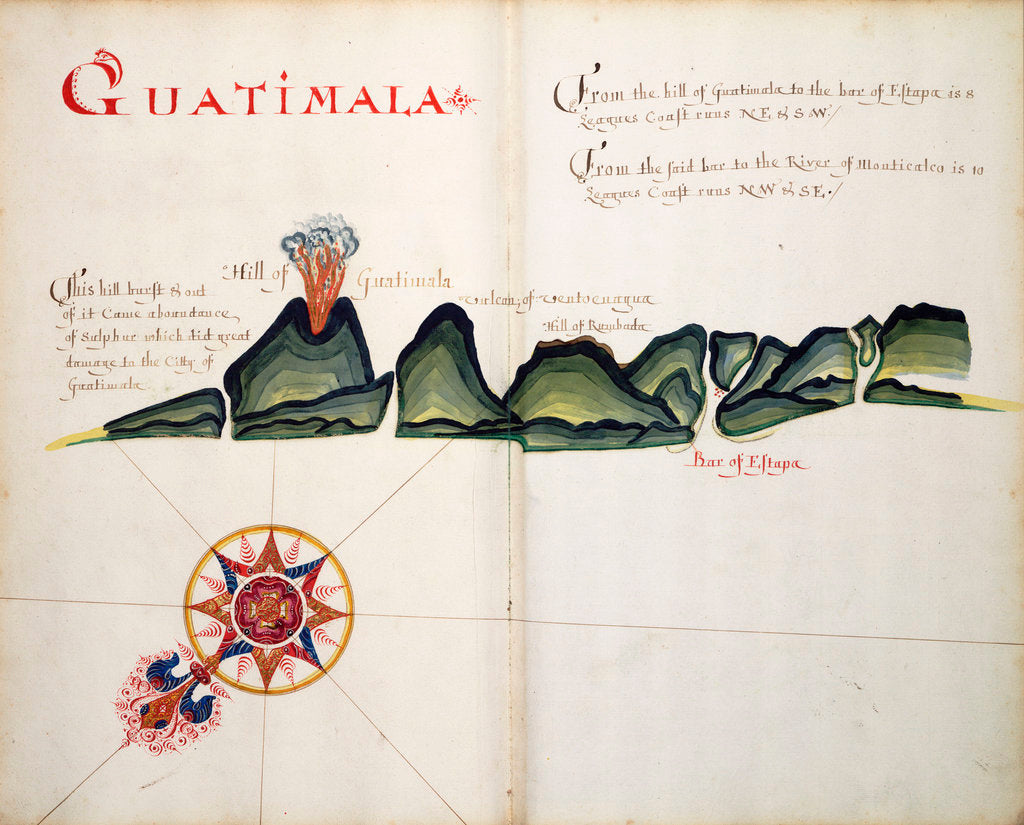 GUATIMALA
From the hill of Guatimala to the bar of Estapa is 8
Leagues Coast runs NE & SW./
From the said bar to the River of Monticalco is 10
Leagues Coast runs NW & SE./
Hill of Guatimala
This hill burst & out
of it Came aboundance
of Sulphur which did great
damage to the Citty of
Guatimala
Vulcan of
Hill of Rumbada
Bar of Estapa